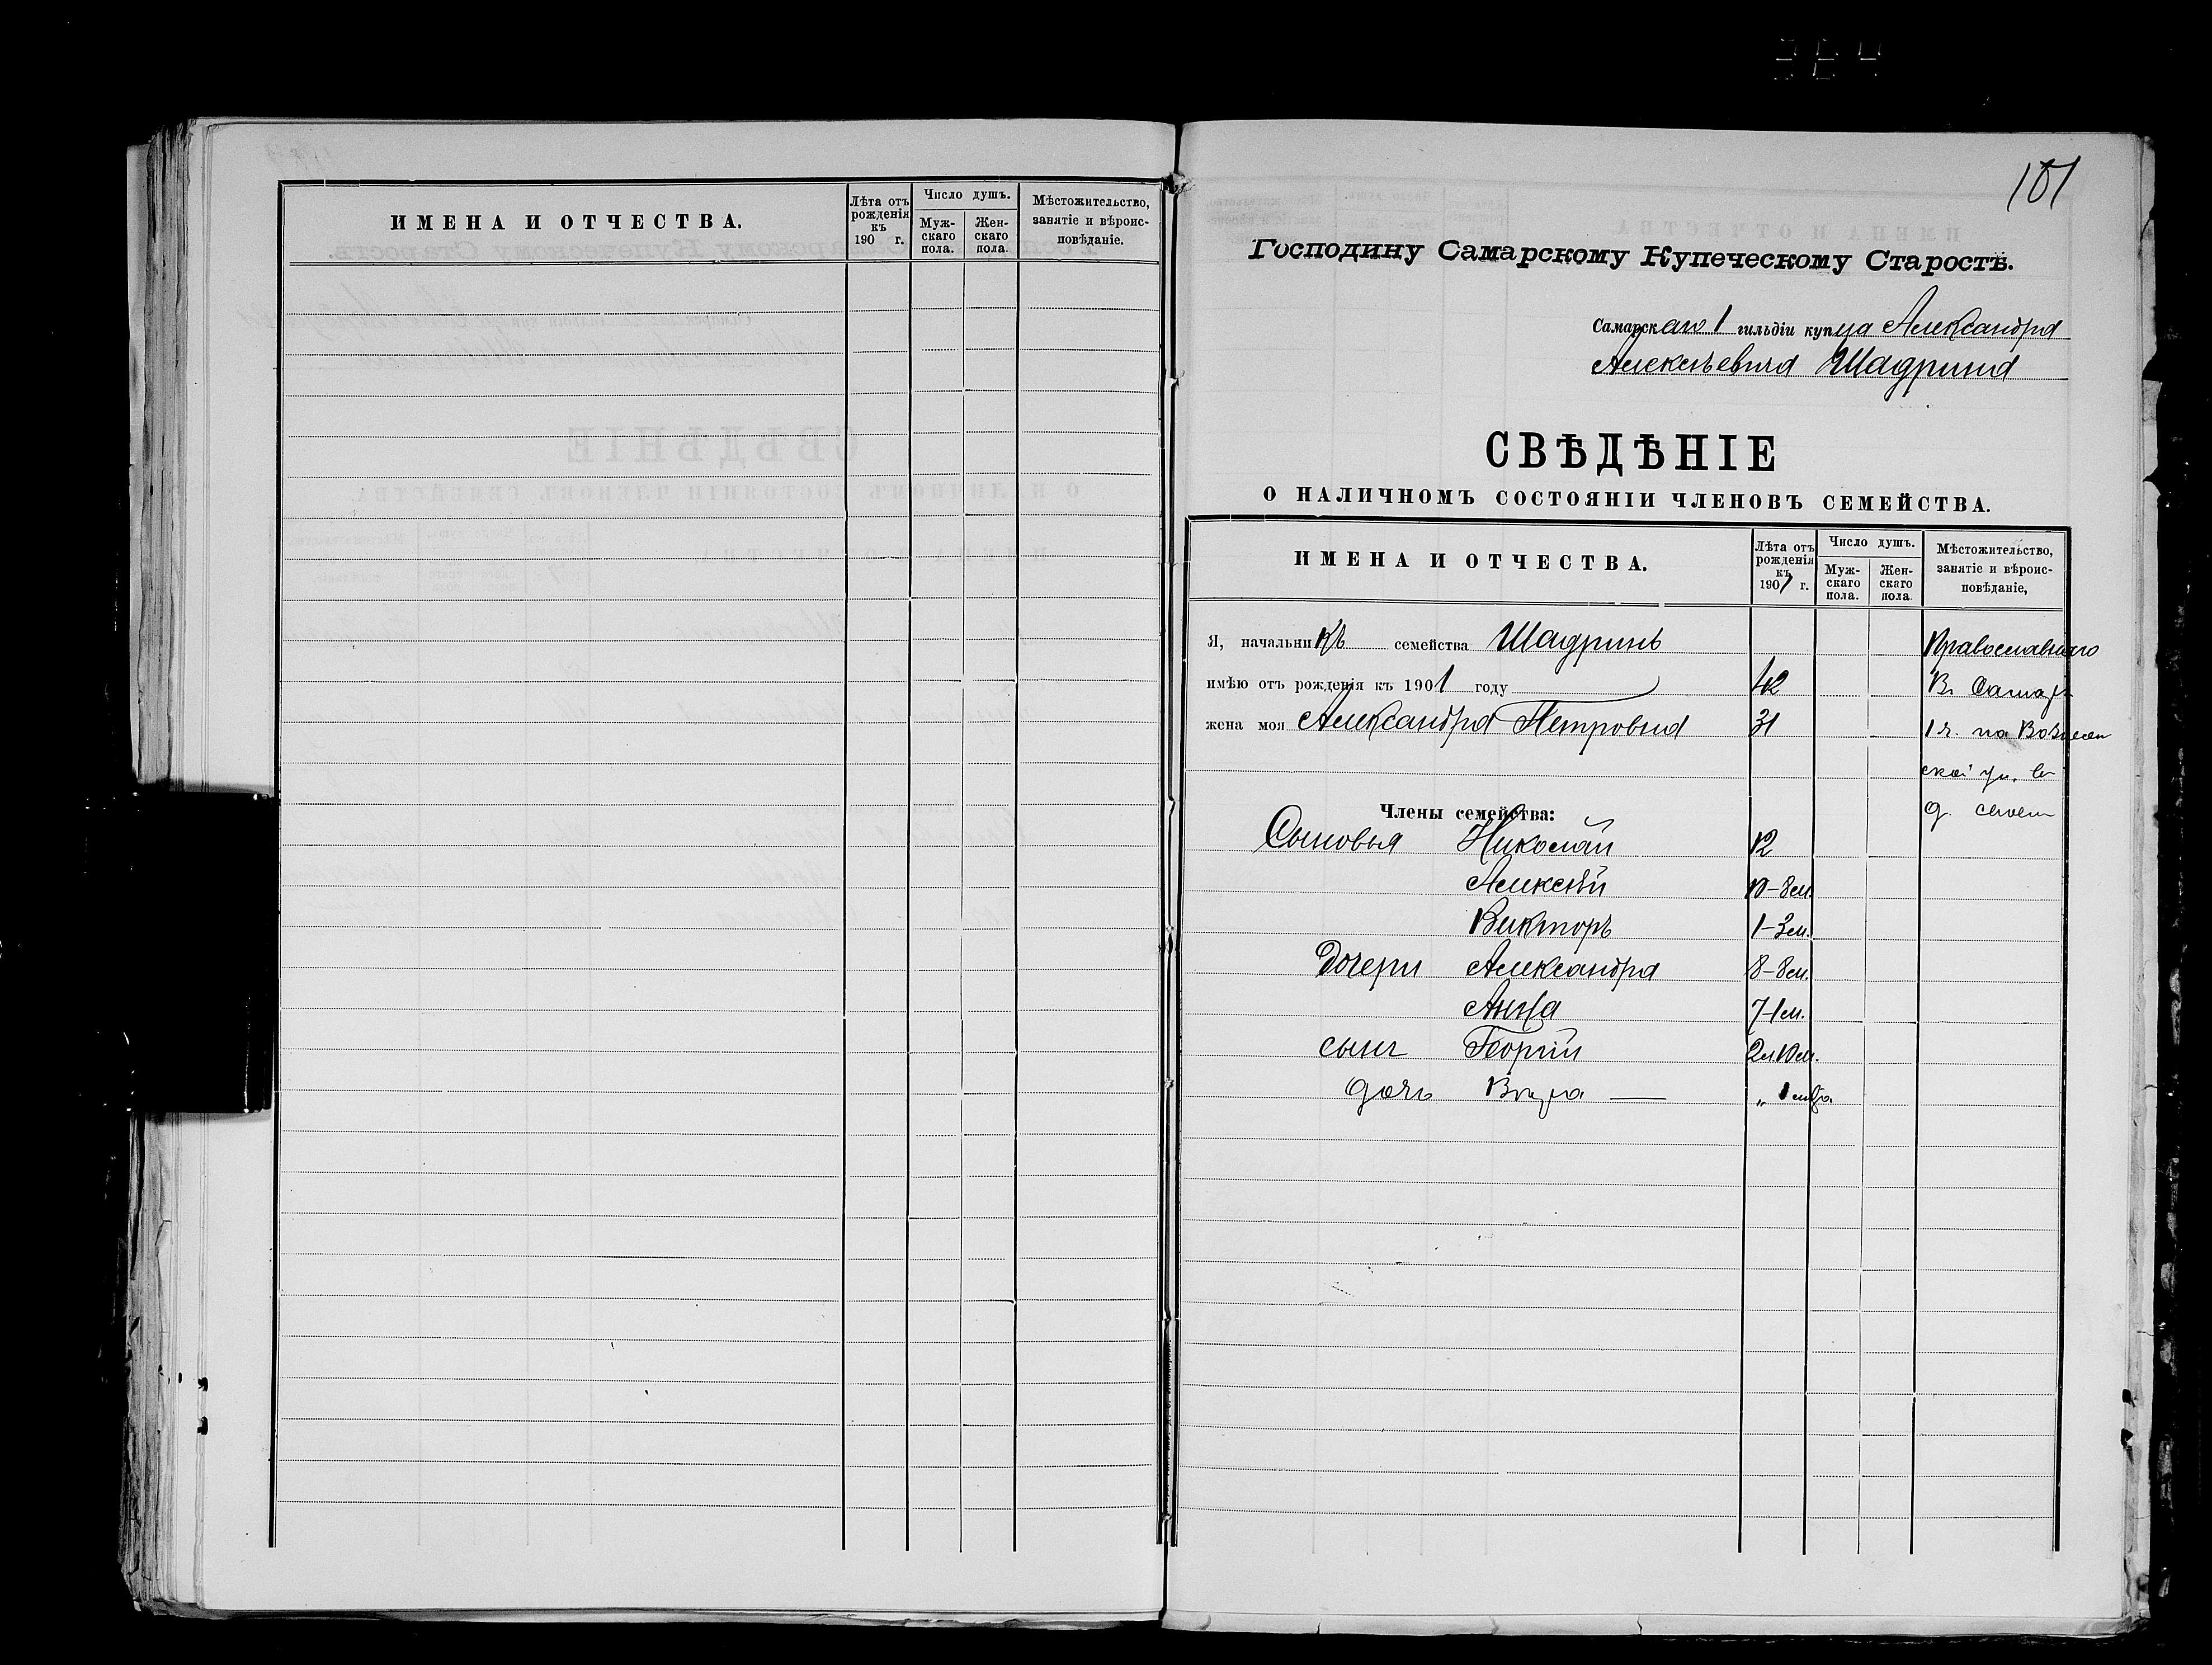 ИМЕНА И ОТЧЕСТВА.
Лѣта отъ рожденія къ 190 г.
Число душъ.
Мужскаго пола.
Женскаго пола.
Мѣстожительство, занятіе и вѣроисповѣданіе.
101
Господину Самарскому Купеческому Старостѣ.
Самарскаго 1 гильдіи купца Александра
Алексѣевича Шадрина
СВѢДѢНІЕ
О НАЛИЧНОМЪ СОСТОЯНІИ ЧЛЕНОВЪ СЕМЕЙСТВА.
ИМЕНА И ОТЧЕСТВА.
Лѣта отъ рожденія къ 1901 г.
Число душъ.
Мужскаго пола.
Женскаго пола.
Мѣстожительство, занятіе и вѣроисповѣданіе,
Я, начальникъ семейства Шадринъ Православнаго
имѣю отъ рожденія къ 1901 году 42 Въ Самарѣ
жена моя Александра Петровна 31 1 ч. на Вознесен
ской ул. въ
Члены семейства: д. своем
Сыновья Николай 12
Алексѣй 10-8 м.
Викторъ 1-3 м.
Дочери Александра 8-8 м.
Анна 7-1 м.
сынъ Георгій 2 г. 10 м.
дочь Вѣра — „ 1 мѣс.